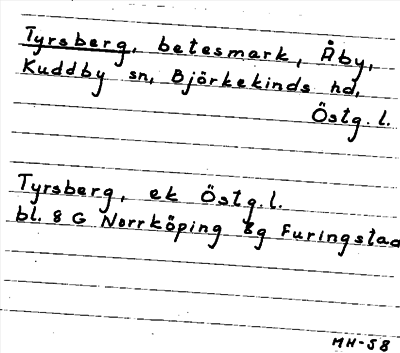 Tyrsberg, betesmark, Åby,
Kuddby sn, Björkekinds hd,
Östg. l.
Tyrsberg, ek Östg. l.
bl. 8 G Norrköping 8g Furingstad
MH-58